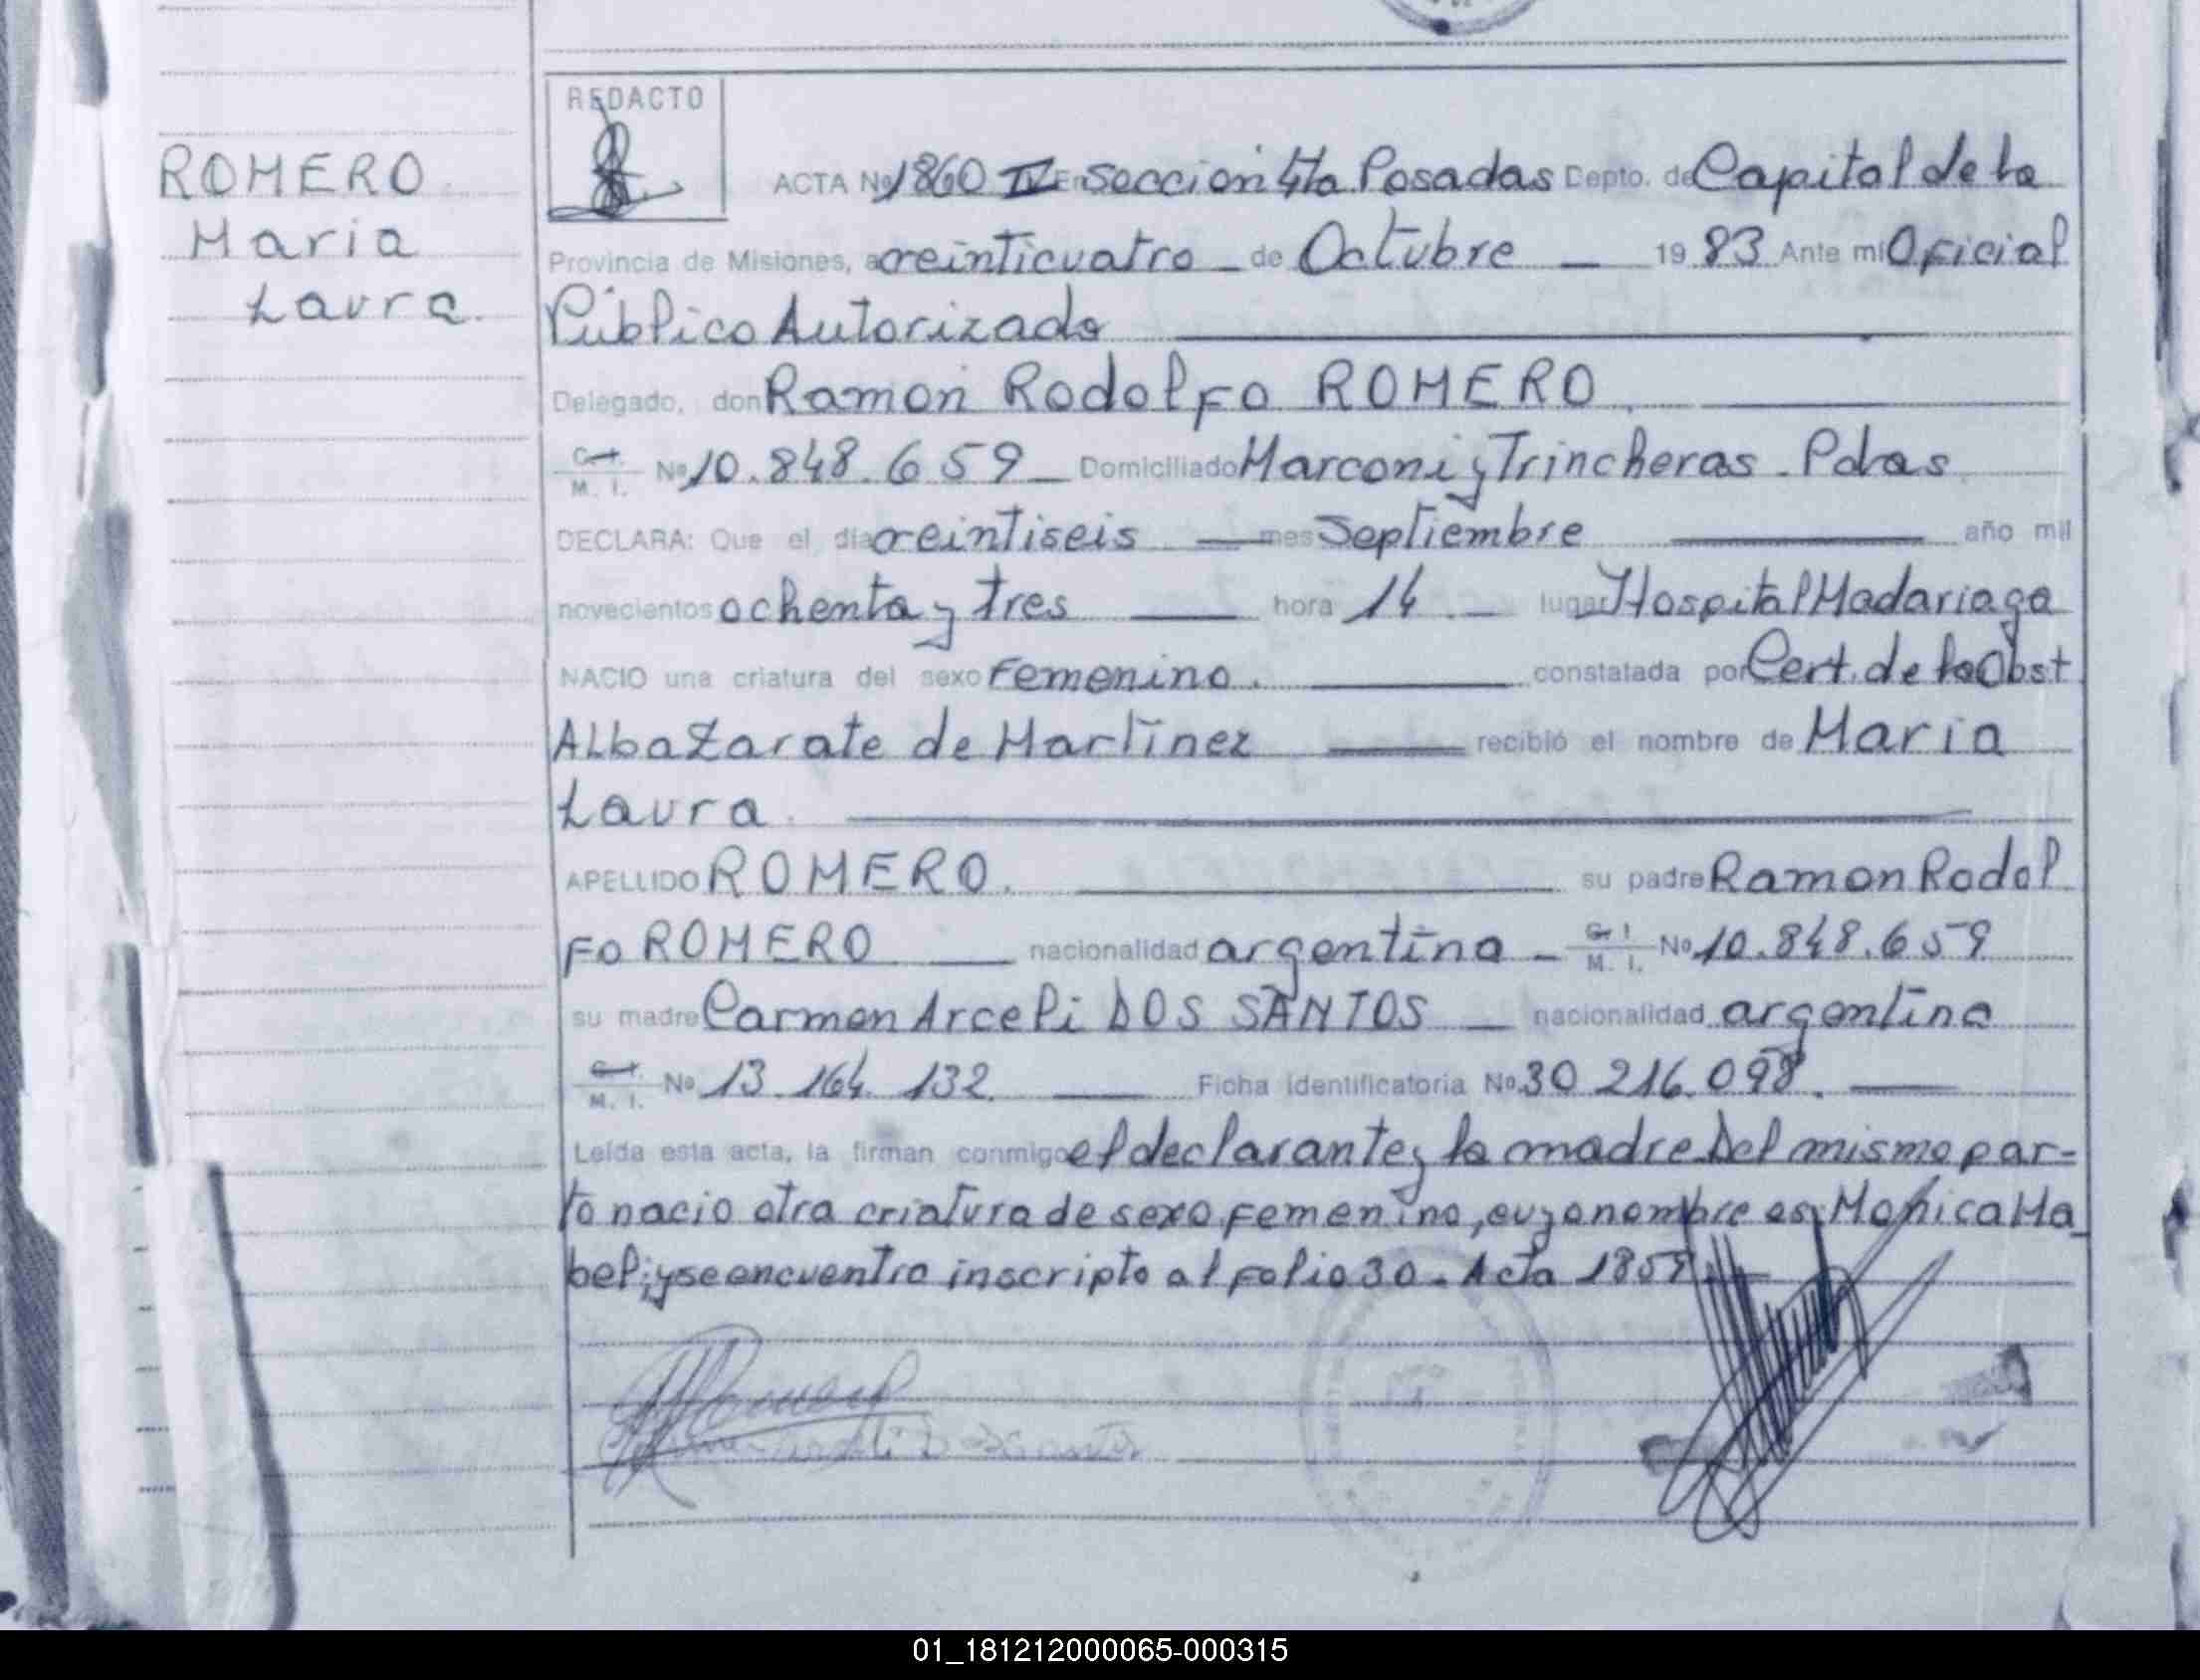 REDACTO
ROMERO
Maria
Laura.
ACTA Nº 1860 IV En Sección 4ta Posadas Depto. de Capital de la
Provincia de Misiones, a veinticuatro _ de Octubre _ 19 83 Ante mi Oficial
Público Autorizado
Delegado, don Ramón Rodolfo ROMERO
C. I. M. I. Nº 10.848.659 _ Domiciliado Marconi y Trincheras - Pdas
DECLARA: Que el día veintiseis _ mes Septiembre _ año mil
novecientos ochenta y tres _ hora 14 _ lugar Hospital Madariaga
NACIO una criatura del sexo Femenino. _ constatada por Cert. de la Obst
Alba Zarate de Martínez _ recibió el nombre de Maria
Laura.
APELLIDO ROMERO. _ su padre Ramon Rodol
Fo ROMERO _ nacionalidad argentina - C. I. M. I. Nº 10.848.659
su madre Carmen Arceli DOS SANTOS _ nacionalidad argentina
C. I. M. I. Nº 13.164.132. _ Ficha identificatoria Nº 30.216.098. _
Leída esta acta, la firman conmigo el declarante y la madre. Del mismo par-
to nacio otra criatura de sexo Femenino, cuyo nombre es: Monica Ma
bel; y se encuentra inscripto al Folio 30. Acta
01_181212000065-000315